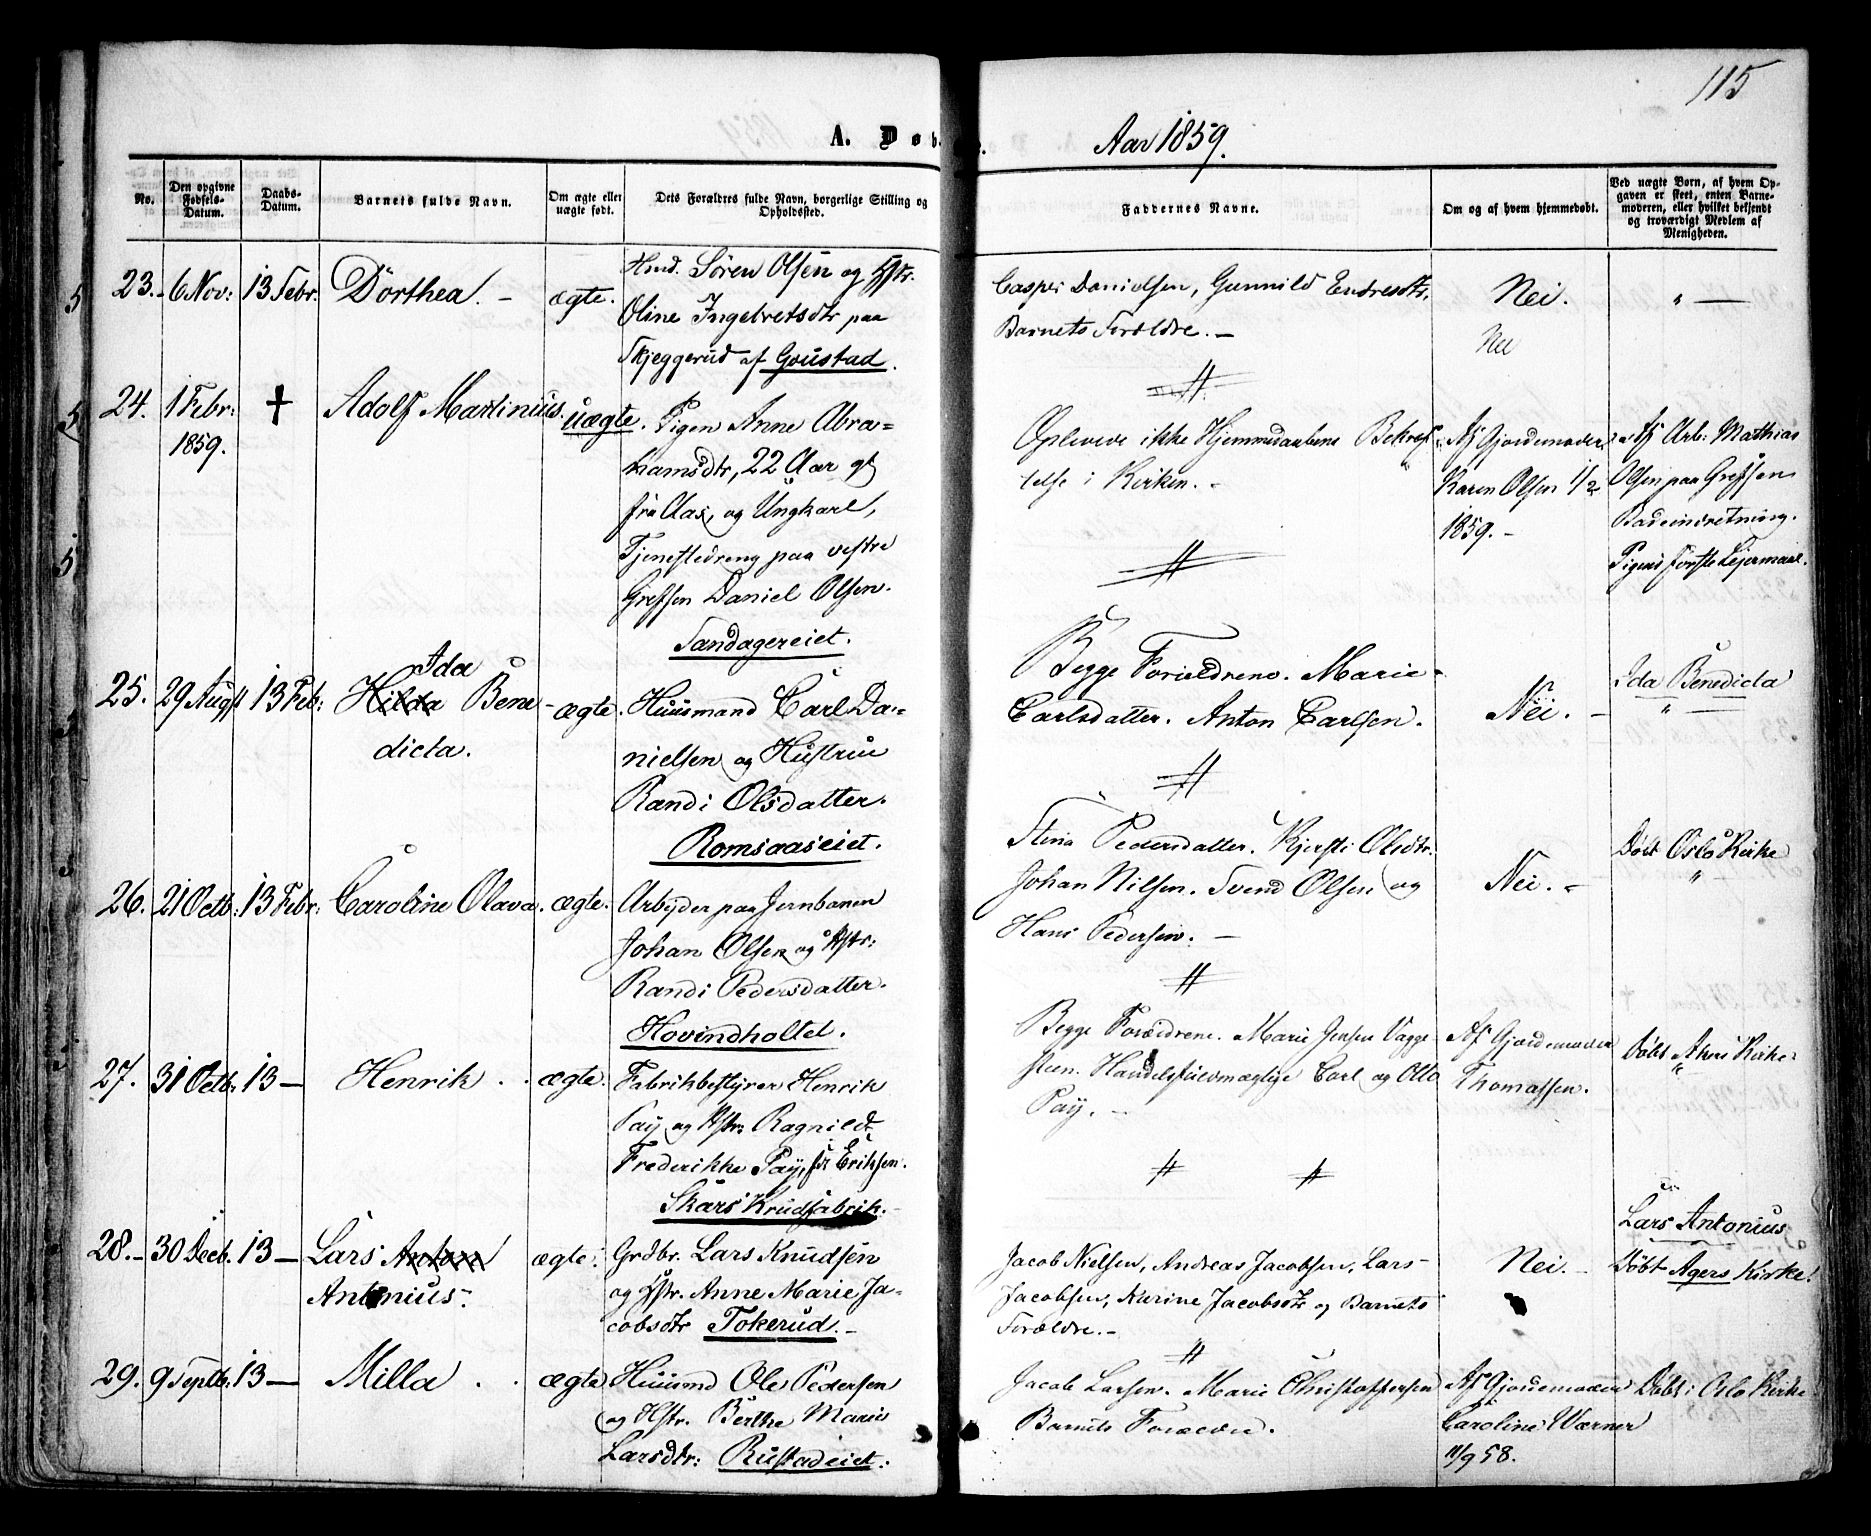 115
A. Døb. Aar 1859.
No. Den opgivne Fødsels-Datum. Daabs-Datum. Barnets fulde Navn. Om ægte eller uægte født. Dets Forældres fulde Navn, borgerlige Stilling og Opholdssted. Faddernes Navne. Om og af hvem hjemmedøbt. Ved uægte Børn, af hvem Opgaven er skeet, enten Barnemoderen, eller hvilket bekjendt og troværdigt Medlem af Menigheden.
23. 6 Nov: 13 Febr. Dorthea. ægte.
Hmd. Sören Olsen og Hstr.
Oline Ingebretsdtr paa
Skjeggerud af Goustad.
Casper Danielsen, Gunnild Endresdtr,
Barnets Forældre.
Nei.
Nei
24. 1 Febr: 1859. † Adolf Martinius. uægte.
Pigen Anne Abra=
hamsdtr, 22 Aar gl
fra Aas, og Ungkarl,
Tjenestedreng paa vestre
Grefsen Daniel Olsen.
Oplevede ikke Hjemmedaabens Bekræf
telse i Kirken.
Af Gjordemoder
Karen Olsen 1/2
1859.
Af Arb: Mathias
Olsen paa Grefsen
Badeindretning.
Pigens første Leiermaal.
Sandagereiet.
25. 29 Augst 13 Feb: Hilda Ida Bene
dicta. ægte.
Huusmand Carl Da=
nielsen og Hustrue
Randi Olsdatter.
Begge Forældrene. Marie
Carlsdatter. Anton Carlsen.
Nei.
Ida Benedicta
Romsaaseiet.
26. 21 Octb: 13 Febr: Caroline Olava. ægte.
Arbeider paa Jernbanen
Johan Olsen og Hstr:
Randi Pedersdatter.
Stina Pedersdatter. Kjersti Olsdtr.
Johan Nilsen. Svend Olsen og
Hans Pedersen.
Nei.
Døbt Oslo Kirke
Hovindholtet.
27. 31 Octb: 13 Henrik ægte.
Fabrikbestyrer Henrik
Pay og Hstr: Ragnild
Frederikke Pay, før Eriksen.
Skars Krudfabrik.
Begge Forældrene. Marie Jensen Vagge
steen. Handelsfuldmægtige Carl og Otto
Pay.
Af Gjordemoder
Thomassen.
Døbt Akers Kirke
28. 30 Decb. 13 Lars Anton
Antonius. ægte.
Grdbr. Lars Knudsen
og Hstr. Anne Marie Ja=
cobsdtr Tokerud.
Jacob Nielsen, Andreas Jacobsen, Lars
Jacobsen, Karine Jacobsdtr og Barnets
Forældre.
Nei.
Lars Antonius
Døbt Agers Kirke.
29. 9 Septb: 13 Milla ægte
Huusmd Ole Pedersen
og Hstr. Berthe Marie
Larsdtr: Rustadeiet.
Jacob Larsen. Marie Christoffersen
Barnets Forældre.
Af Gjordemoder
Caroline Wærner
11/9 58.
Døbt i Oslo Kirke